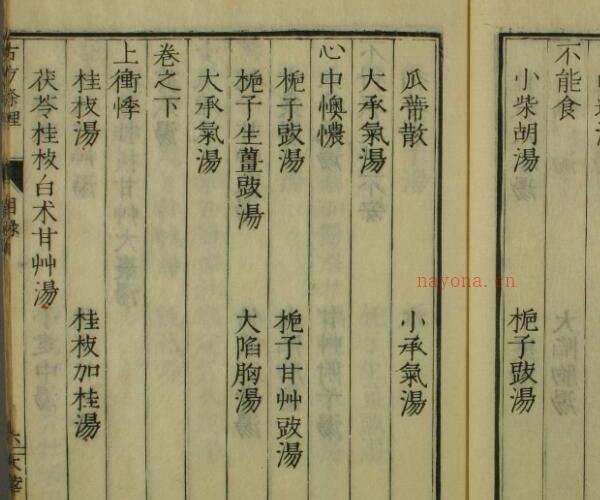 不能食
小柴胡湯 梔子豉湯
瓜蔕散 小承氣湯
大承氣湯
心中懊憹
梔子豉湯 梔子甘艸豉湯
梔子生薑豉湯 大陷胸湯
大承氣湯
卷之下
上衝悸
桂枝湯 桂枝加桂湯
茯苓桂枝白术甘艸湯
nayona.vn